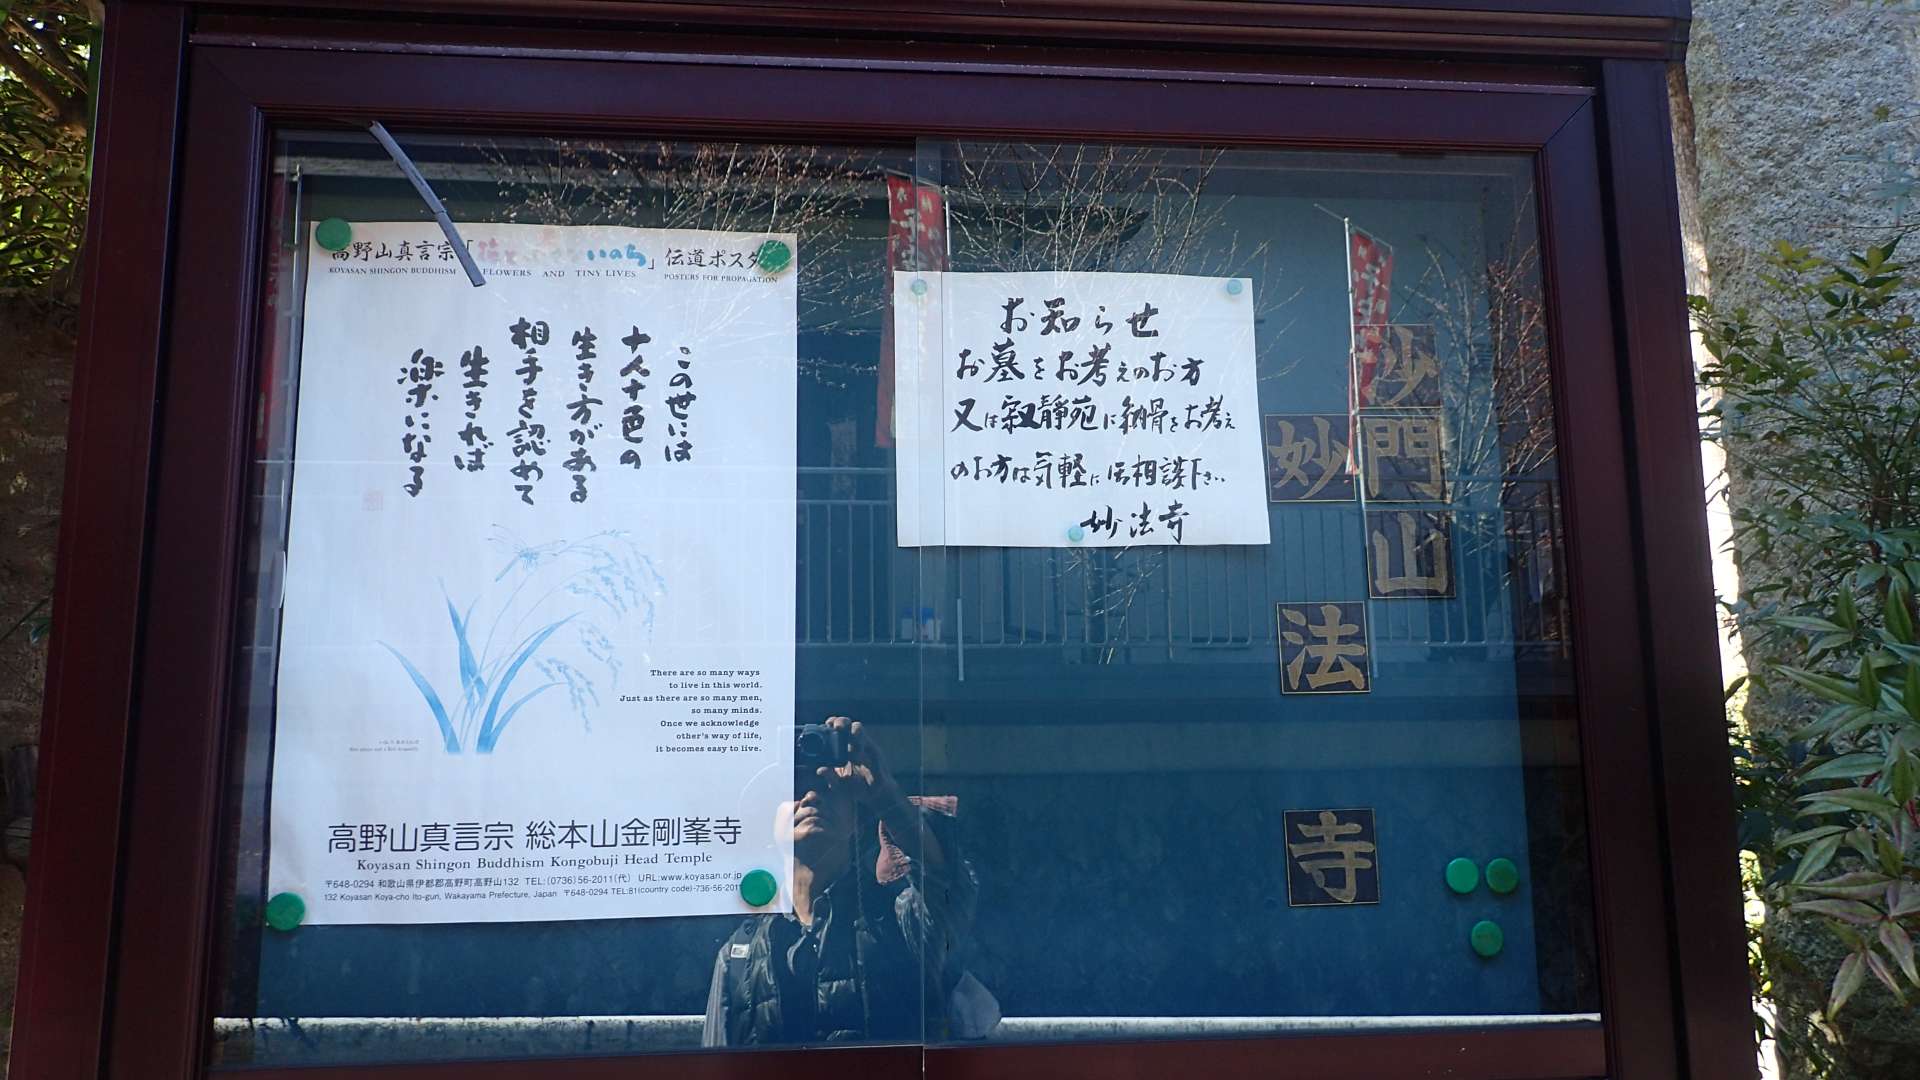 高野山真言宗「花と小さないのち」伝道ポスター
KOYASAN SHINGON BUDDHISM FLOWERS AND TINY LIVES POSTERS FOR PROPAGATION
この世には
十人十色の
生き方がある
相手を認めて
生きれば
楽になる
There are so many ways
to live in this world.
Just as there are so many men,
so many minds.
Once we acknowledge
other's way of life,
it becomes easy to live.
高野山真言宗 総本山金剛峯寺
Koyasan Shingon Buddhism Kongobuji Head Temple
〒648-0294 和歌山県伊都郡高野町高野山132 TEL:(0736)56-2011(代) URL:www.koyasan.or.jp
132 Koyasan Koya-cho Ito-gun, Wakayama Prefecture, Japan 〒648-0294 TEL:81(country code)-736-56-2011
お知らせ
お墓をお考えのお方
又は寂静苑に納骨をお考え
のお方は気軽に御相談下さい
妙法寺
沙門山
妙法寺